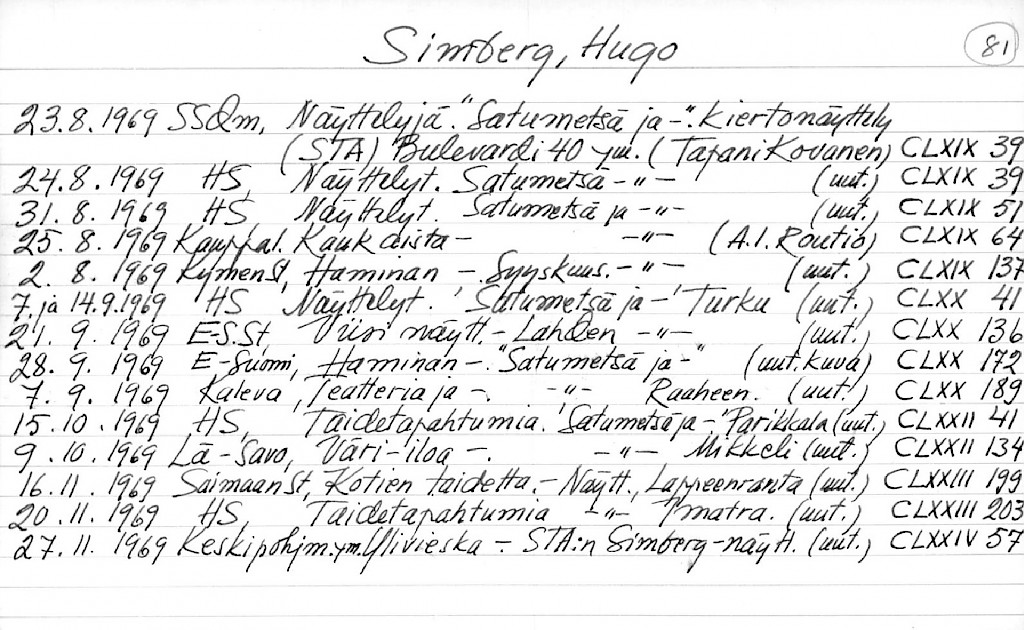 Simberg, Hugo 81
23.8.1969 SSdm, Näyttelyjä. "Satumetsä ja -". Kiertonäyttely
(STA) Bulevardi 40 ym. (Tapani Kovanen) CLXIX 39
24.8.1969 HS, Näyttelyt. Satumetsä -"- (uut.) CLXIX 39
31.8.1969 HS, Näyttelyt. Satumetsä ja -"- (uut.) CLXIX 51
25.8.1969 Kauppal. Kaukaista - -"- (A.I. Routio) CLXIX 64
2.8.1969 KymenSt, Haminan - Syyskuus. -"- (uut.) CLXIX 137
7. ja 14.9.1969 HS Näyttelyt. 'Satumetsä ja -' Turku (uut.) CLXX 41
21.9.1969 E-S.St, Viisi näytt. - Lahden -"- (uut.) CLXX 136
28.9.1969 E-Suomi, Haminan -. "Satumetsä ja -" (uut.kuva) CLXX 172
7.9.1969 Kaleva, Teatteria ja -. -"- Raaheen. (uut.) CLXX 189
15.10.1969 HS, Taidetapahtumia. 'Satumetsä ja -' Parikkala (uut.) CLXXII 41
9.10.1969 Lä-Savo, Väri-iloa -. -"- Mikkeli (uut.) CLXXII 134
16.11.1969 SaimaanSt, Kotien taidetta. - Näytt., Lappeenranta (uut.) CLXXIII 199
20.11.1969 HS, Taidetapahtumia -"- Imatra. (uut.) CLXXIII 203
27.11.1969 Keskipohjm.ym. Ylivieska - STA:n Simberg-näytt. (uut.) CLXXIV 57